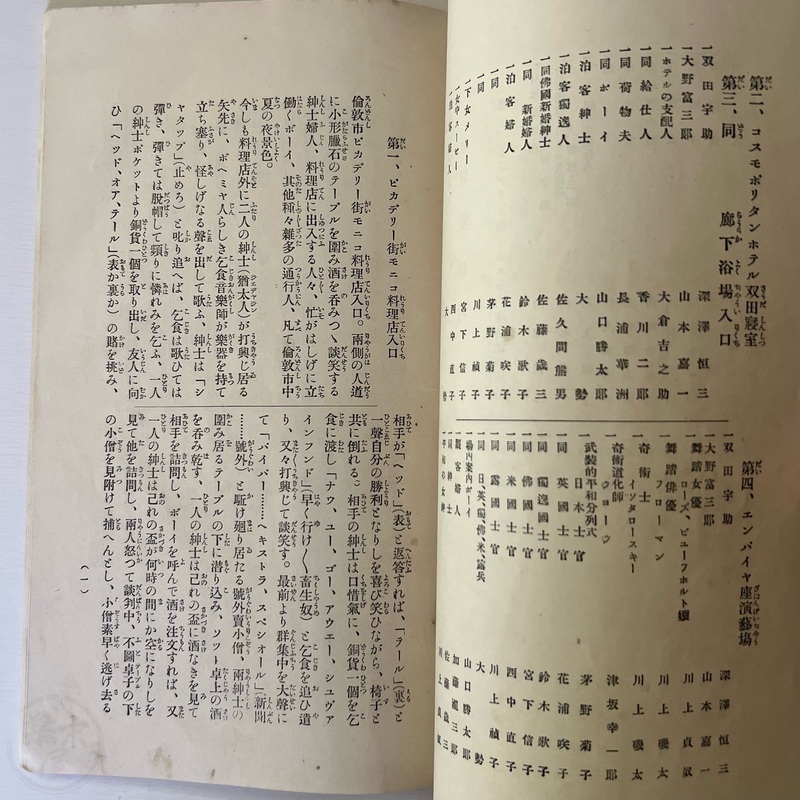 第二、コスモポリタンホテル双田寝室
第三、同 廊下浴場入口
一双田宇助 深澤恒三
一大野富三郎 山本嘉一
一ホテルの支配人 大倉吉之助
一同給仕人 香川二郎
一同荷物夫 長浦華洲
一同ボーイ 山口勝太郎
一泊客紳士 大
一泊客獨逸人 佐久間熊男
一同佛國新婚紳士 佐藤歳三
一同新婚婦人 鈴木歌子
一泊客婦人 花浦咲子
一同 茅野菊子
一同 川上禎子
一下女メリー 宮下信子
西中直子
大勢
第四、エンパイヤ座演藝場
一双田宇助 深澤恒三
一大野富三郎 山本嘉一
一舞踏女優 ローズ、ビユーフホルト孃 川上貞奴
一舞踏俳優 フローマン 川上磯太
一奇術士 イツタロースキー 川上磯太
一奇術道化師 ウヨーウ 津坂幸一郎
一武裝的平和分列式
日本士官 茅野菊子
同 英國士官 花浦咲子
同 獨逸國士官 鈴木歌子
同 米國士官 宮下信子
同 佛國士官 西中直子
同 露國士官 川上禎子
同 日、英、獨、佛、米、露兵 大勢
一場內案內ボーイ 山口勝太郎
一觀客婦人 加藤
一同紳士 佐藤歳三
一平和の女神 川上貞奴
第一、ピカデリー街モニコ料理店入口
倫敦市ピカデリー街モニコ料理店入口。兩側の人道
に小形臘石のテーブルを圍み酒を呑みつゝ談笑する
紳士婦人、料理店に出入する人々、忙がはしげに立
働くボーイ、其他種々雜多の通行人、凡て倫敦市中
夏の夜景色。
今しも料理店外に二人の紳士(猶太人)が打興じ居る
矢先に、ボヘミヤ人らしき乞食音樂師が樂器を持て
立ち塞り、怪しげなる聲を出して歌ふ、紳士は「シ
ヤタップ」(止めろ)と叱り追へば、乞食は歌ひては
彈き、彈きては脱帽して頻りに憐れみを乞ふ、一人
の紳士ポケットより銅貨一個を取り出し、友人に向
ひ「ヘッド、オア、テール」(表か裏か)の賭を挑み、
相手が「ヘッド」(表)と返答すれば、「テール」(裏)と
一聲自分の勝利となりしを喜び笑ひながら、椅子と
共に倒れる。相手の紳士は口惜氣に、銅貨一個を乞
食に渡し「ナウ、ユー、ゴー、アウエー、シユヴァ
インフンド」(早く行け〳〵畜生奴)と乞食を追ひ遣
り、又々打興じて談笑す。最前より群集中を大聲に
て「パイパー………ヘキストラ、スペシオール」(新聞
………號外)と駈け廻り居たる號外賣小僧、兩紳士の
圍み居るテーブルの下に潜り込み、ソツト卓上の酒
を呑み乾す、一人の紳士は己れの盃に酒なきを見て
相手を詰問し、ボーイを呼んで酒を注文すれば、又
一人の紳士は己れの盃が何時の間にか空になりしを
見て他を詰問し、兩人怒つて談判中、不圖卓子の下
の小僧を見附けて捕へんとし、小僧素早く逃げ去る
(一)